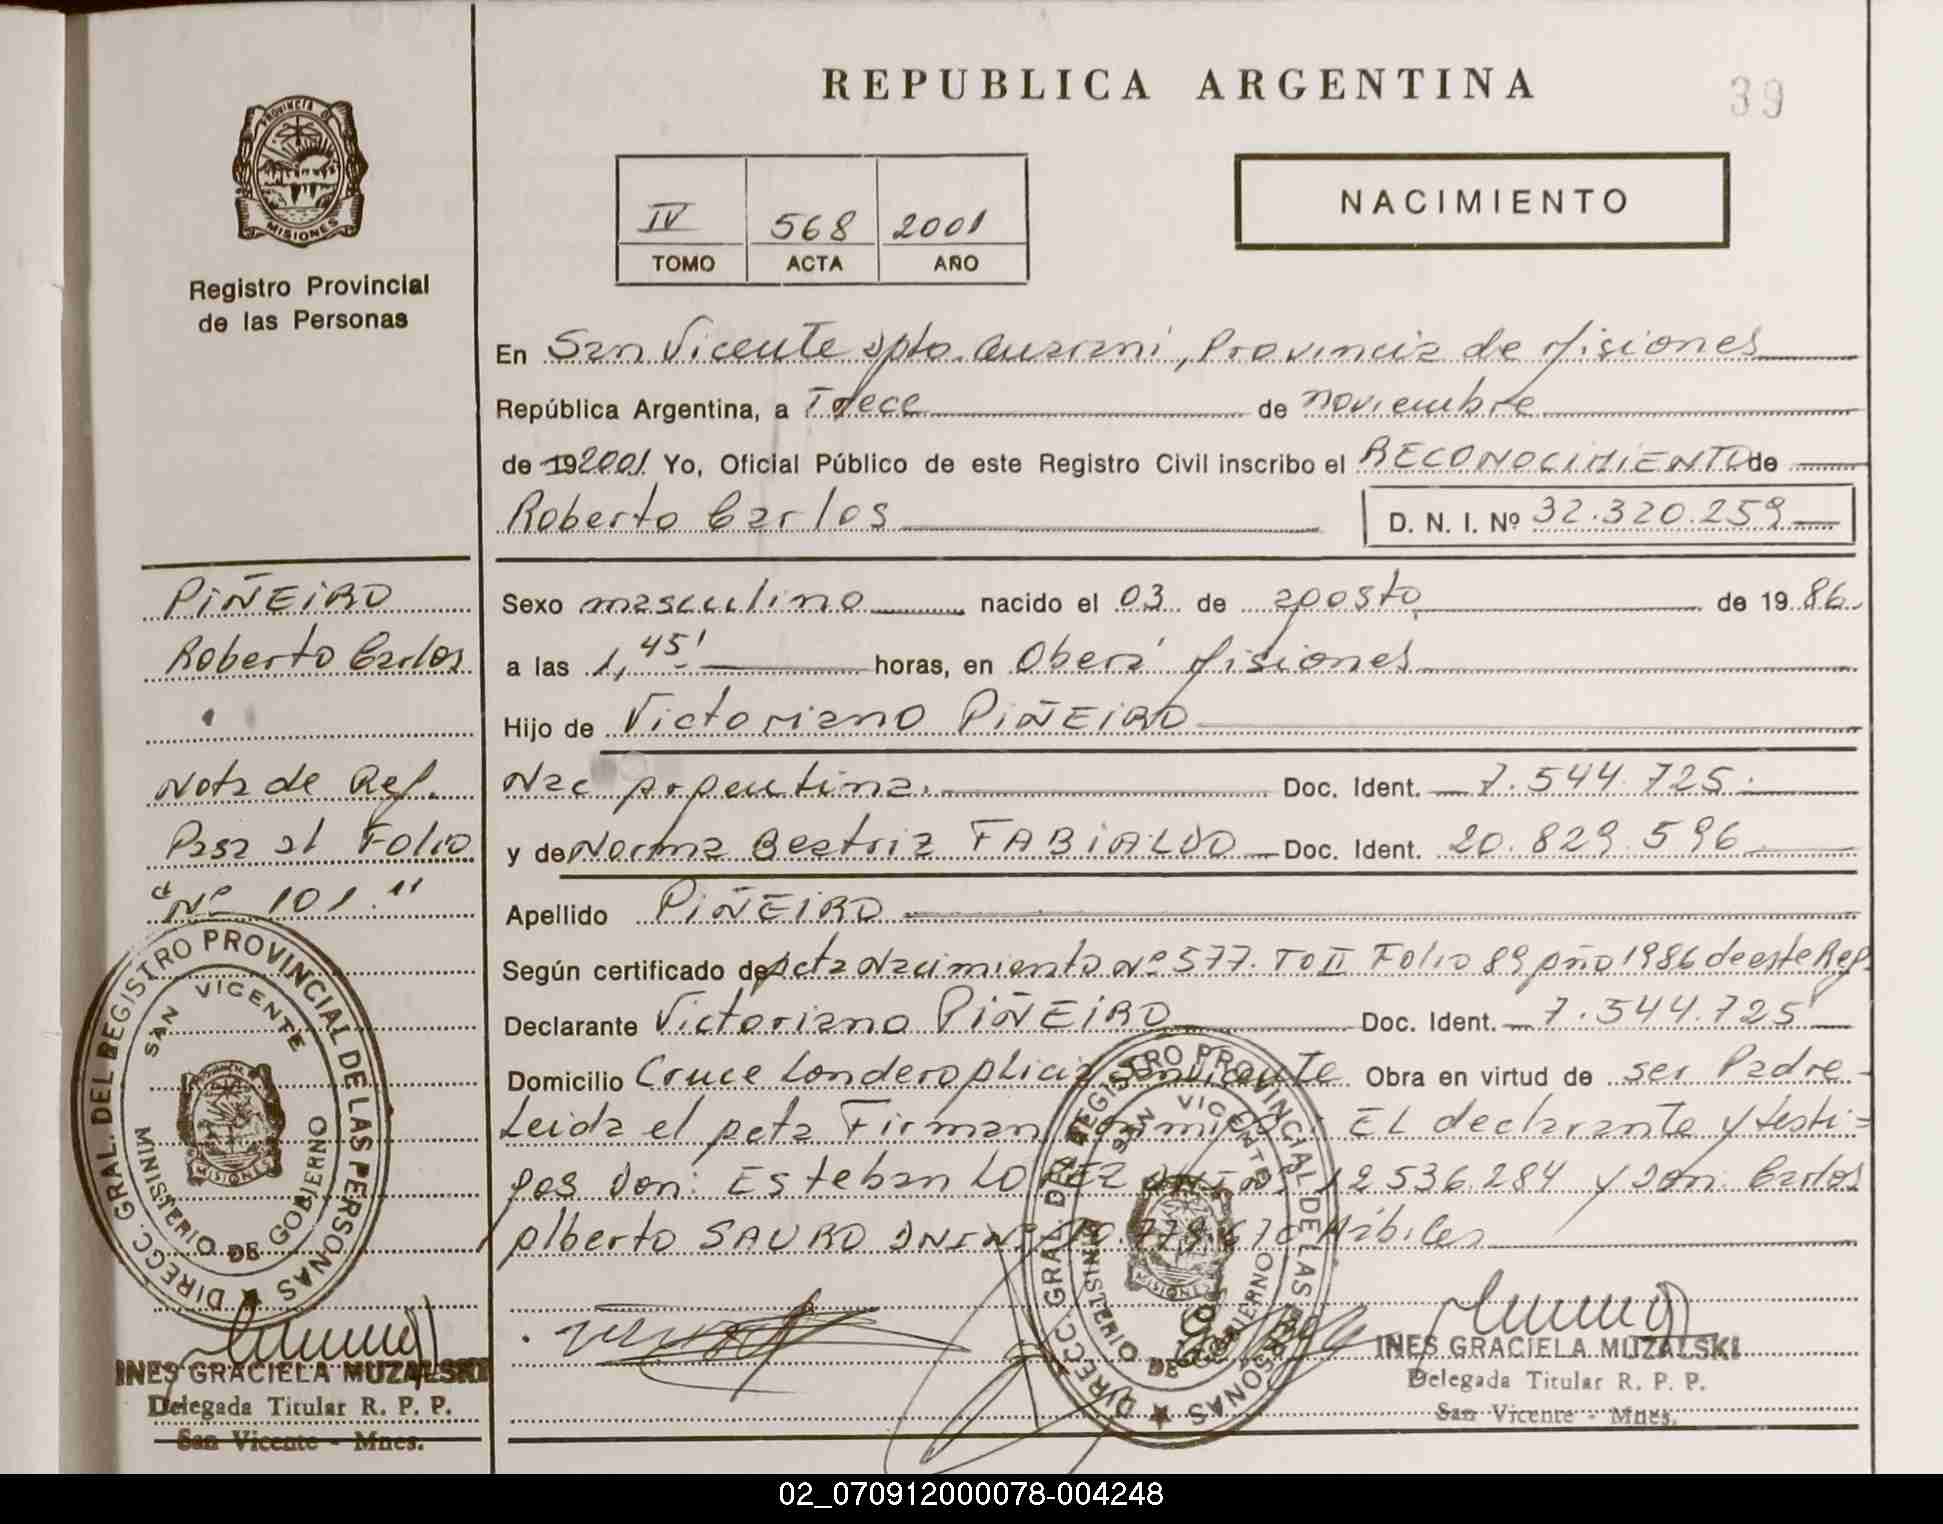 REPUBLICA ARGENTINA
39
PROVINCIA DE
MISIONES
Registro Provincial
de las Personas
IV 568 2001
TOMO ACTA AÑO
NACIMIENTO
En San Vicente Dpto. Guarani, Provincia de Misiones
República Argentina, a Trece de noviembre
de 19 2001 Yo, Oficial Público de este Registro Civil inscribo el RECONOCIMIENTO de
Roberto Carlos D. N. I. Nº 32.320.259
Sexo masculino nacido el 03 de agosto de 19 86
a las 1,45' horas, en Oberá Misiones
Hijo de Victoriano PIÑEIRO
Nac Argentina. Doc. Ident. 7.544.725
y de Norma Beatriz FABIALDO Doc. Ident. 20.829.596
Apellido PIÑEIRO
Según certificado de Acta Nacimiento Nº 577. Tº II Folio 89 Año 1986 de este Reg.
Declarante Victoriano PIÑEIRO Doc. Ident. 7.544.725
Domicilio Cruce Londero San Vicente Obra en virtud de ser Padre
Leida el Acta Firman conmigo: EL declarante y testi=
gos Don: Esteban LOPEZ DNI Nº 12.536.284 y Don: Carlos
Alberto SAURO DNI Nº Hábiles
PIÑEIRO
Roberto Carlos
Nota de Ref.
Pasa al Folio
"Nº 101."
DIRECC. GRAL. DEL REGISTRO PROVINCIAL DE LAS PERSONAS
SAN VICENTE
MINISTERIO DE GOBIERNO
MISIONES
INES GRACIELA MUZALSKI
Delegada Titular R. P. P.
San Vicente - Mnes.
DIRECC. GRAL. DEL REGISTRO PROVINCIAL DE LAS PERSONAS
SAN VICENTE
MINISTERIO DE GOBIERNO
MISIONES
INES GRACIELA MUZALSKI
Delegada Titular R. P. P.
San Vicente - Mnes.
02_070912000078-004248